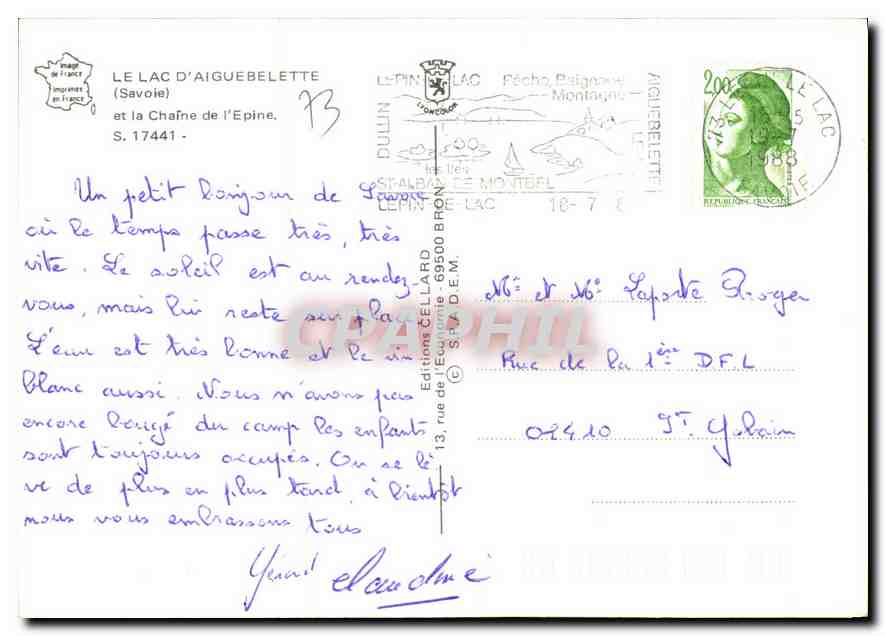 Image
de France
imprimée
en France
LE LAC D'AIGUEBELETTE
(Savoie)
et la Chaîne de l'Epine.
S. 17441 -
73
LYONCOLOR
LEPIN LE LAC Pêche, Baignade
Montagne
DULLIN
AIGUEBELETTE
les Iles
ST-ALBAN DE MONTBEL
LEPIN-LE-LAC 18-7
2,00
REPUBLIQUE FRANCAISE
73 LE LAC
1988
Un petit bonjour de Savoie
où le temps passe très, très
vite. Le soleil est au rendez-
vous, mais lui reste sur place.
L'eau est très bonne et le vin
blanc aussi. Nous n'avons pas
encore bougé du camp les enfants
sont toujours occupés. On se lè
ve de plus en plus tard, à bientôt
nous vous embrassons tous
Gérard Claudine
Editions CELLARD
13, rue de l'Economie - 69500 BRON
© S.P.A.D.E.M.
Mr et Me Laporte Roger
Rue de la 1ère D.F.L
02410 St. Gobain
CPAPHIL